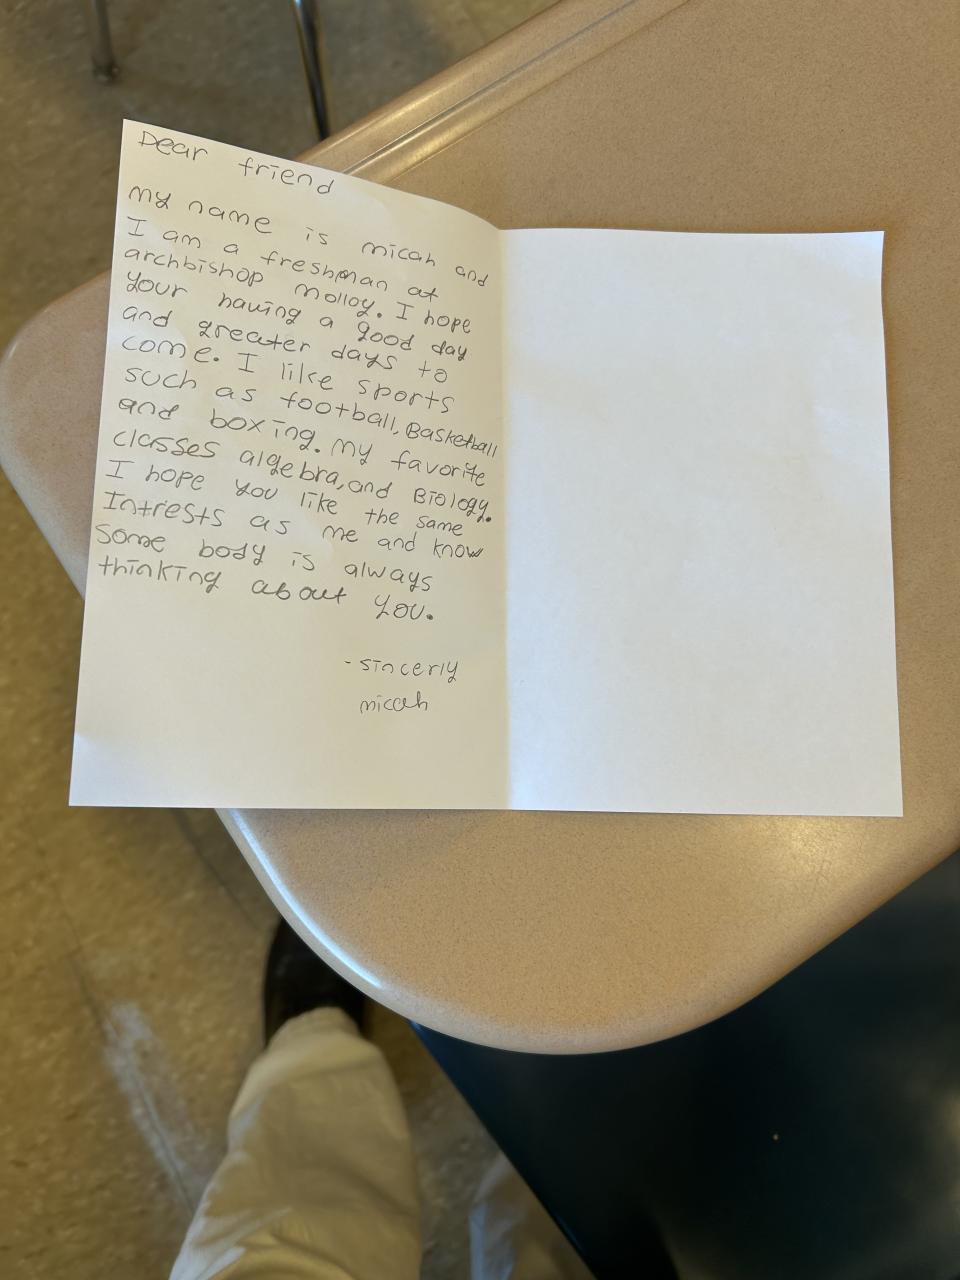 Dear friend
my name is micah and
I am a freshman at
archbishop molloy. I hope
your having a good day
and greater days to
come. I like sports
such as football, Basketball
and boxing. my favorite
classes algebra, and Biology.
I hope you like the same
Intrests as me and know
some body is always
thinking about you.
- sincerly
micah